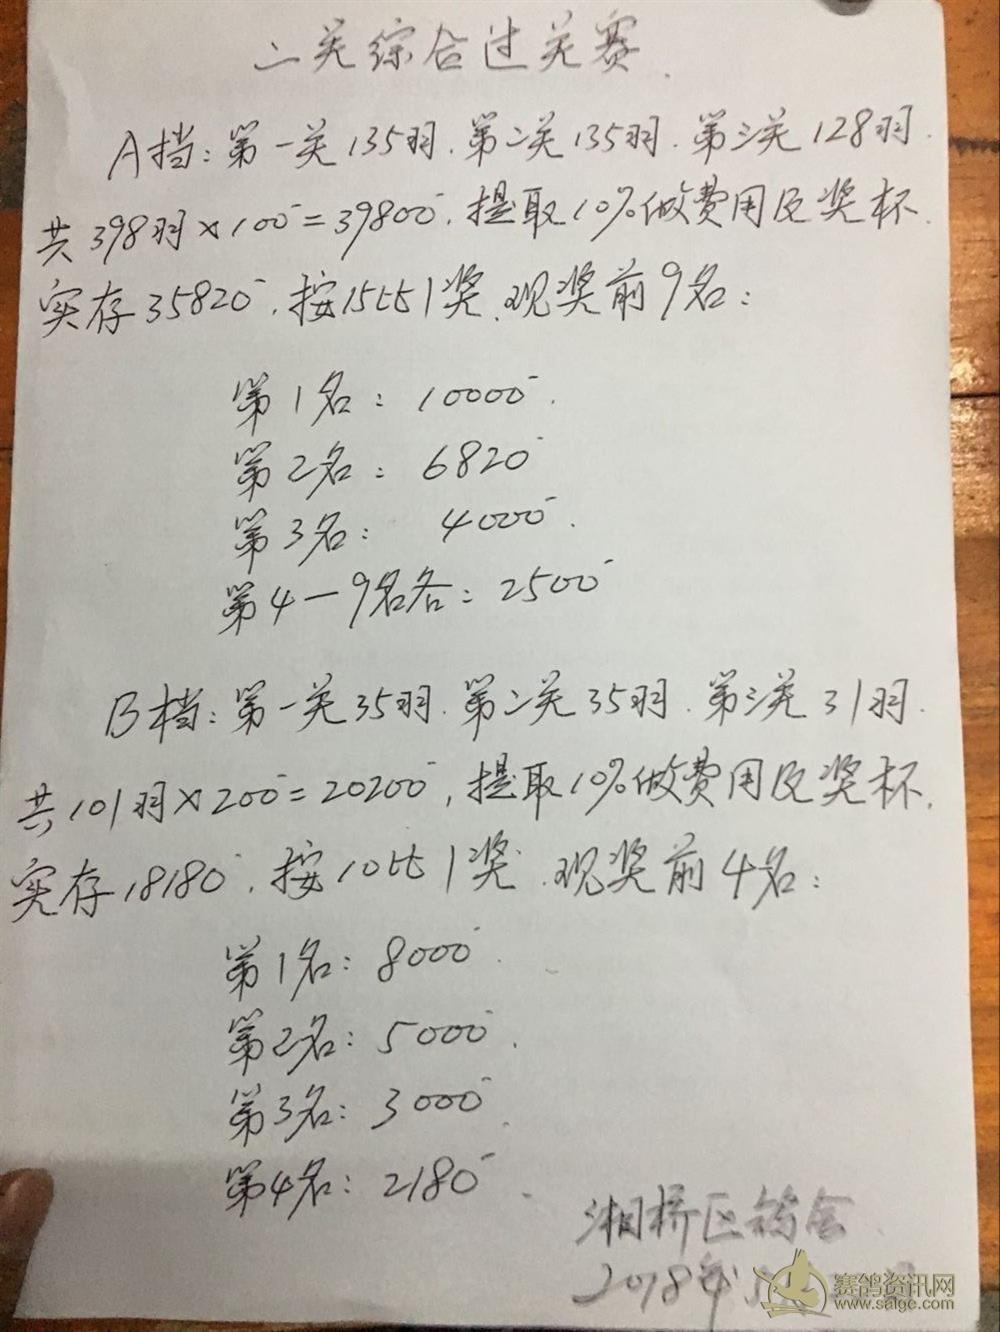 三关综合过关赛
A挡：第一关135羽.第二关135羽.第三关128羽.
共398羽×100=39800.提取10%做费用及奖杯.
实存35820.按15比1奖.现奖前9名：
第1名：10000.
第2名：6820
第3名：4000.
第4一9名各：2500
B档：第一关35羽.第二关35羽.第三关31羽.
共101羽×200=20200,提取10%做费用及奖杯.
实存18180.按10比1奖.现奖前4名：
第1名：8000.
第2名：5000.
第3名：3000.
第4名：2180.
湘桥区鸽会
2018年
赛鸽资讯网
www.saige.com